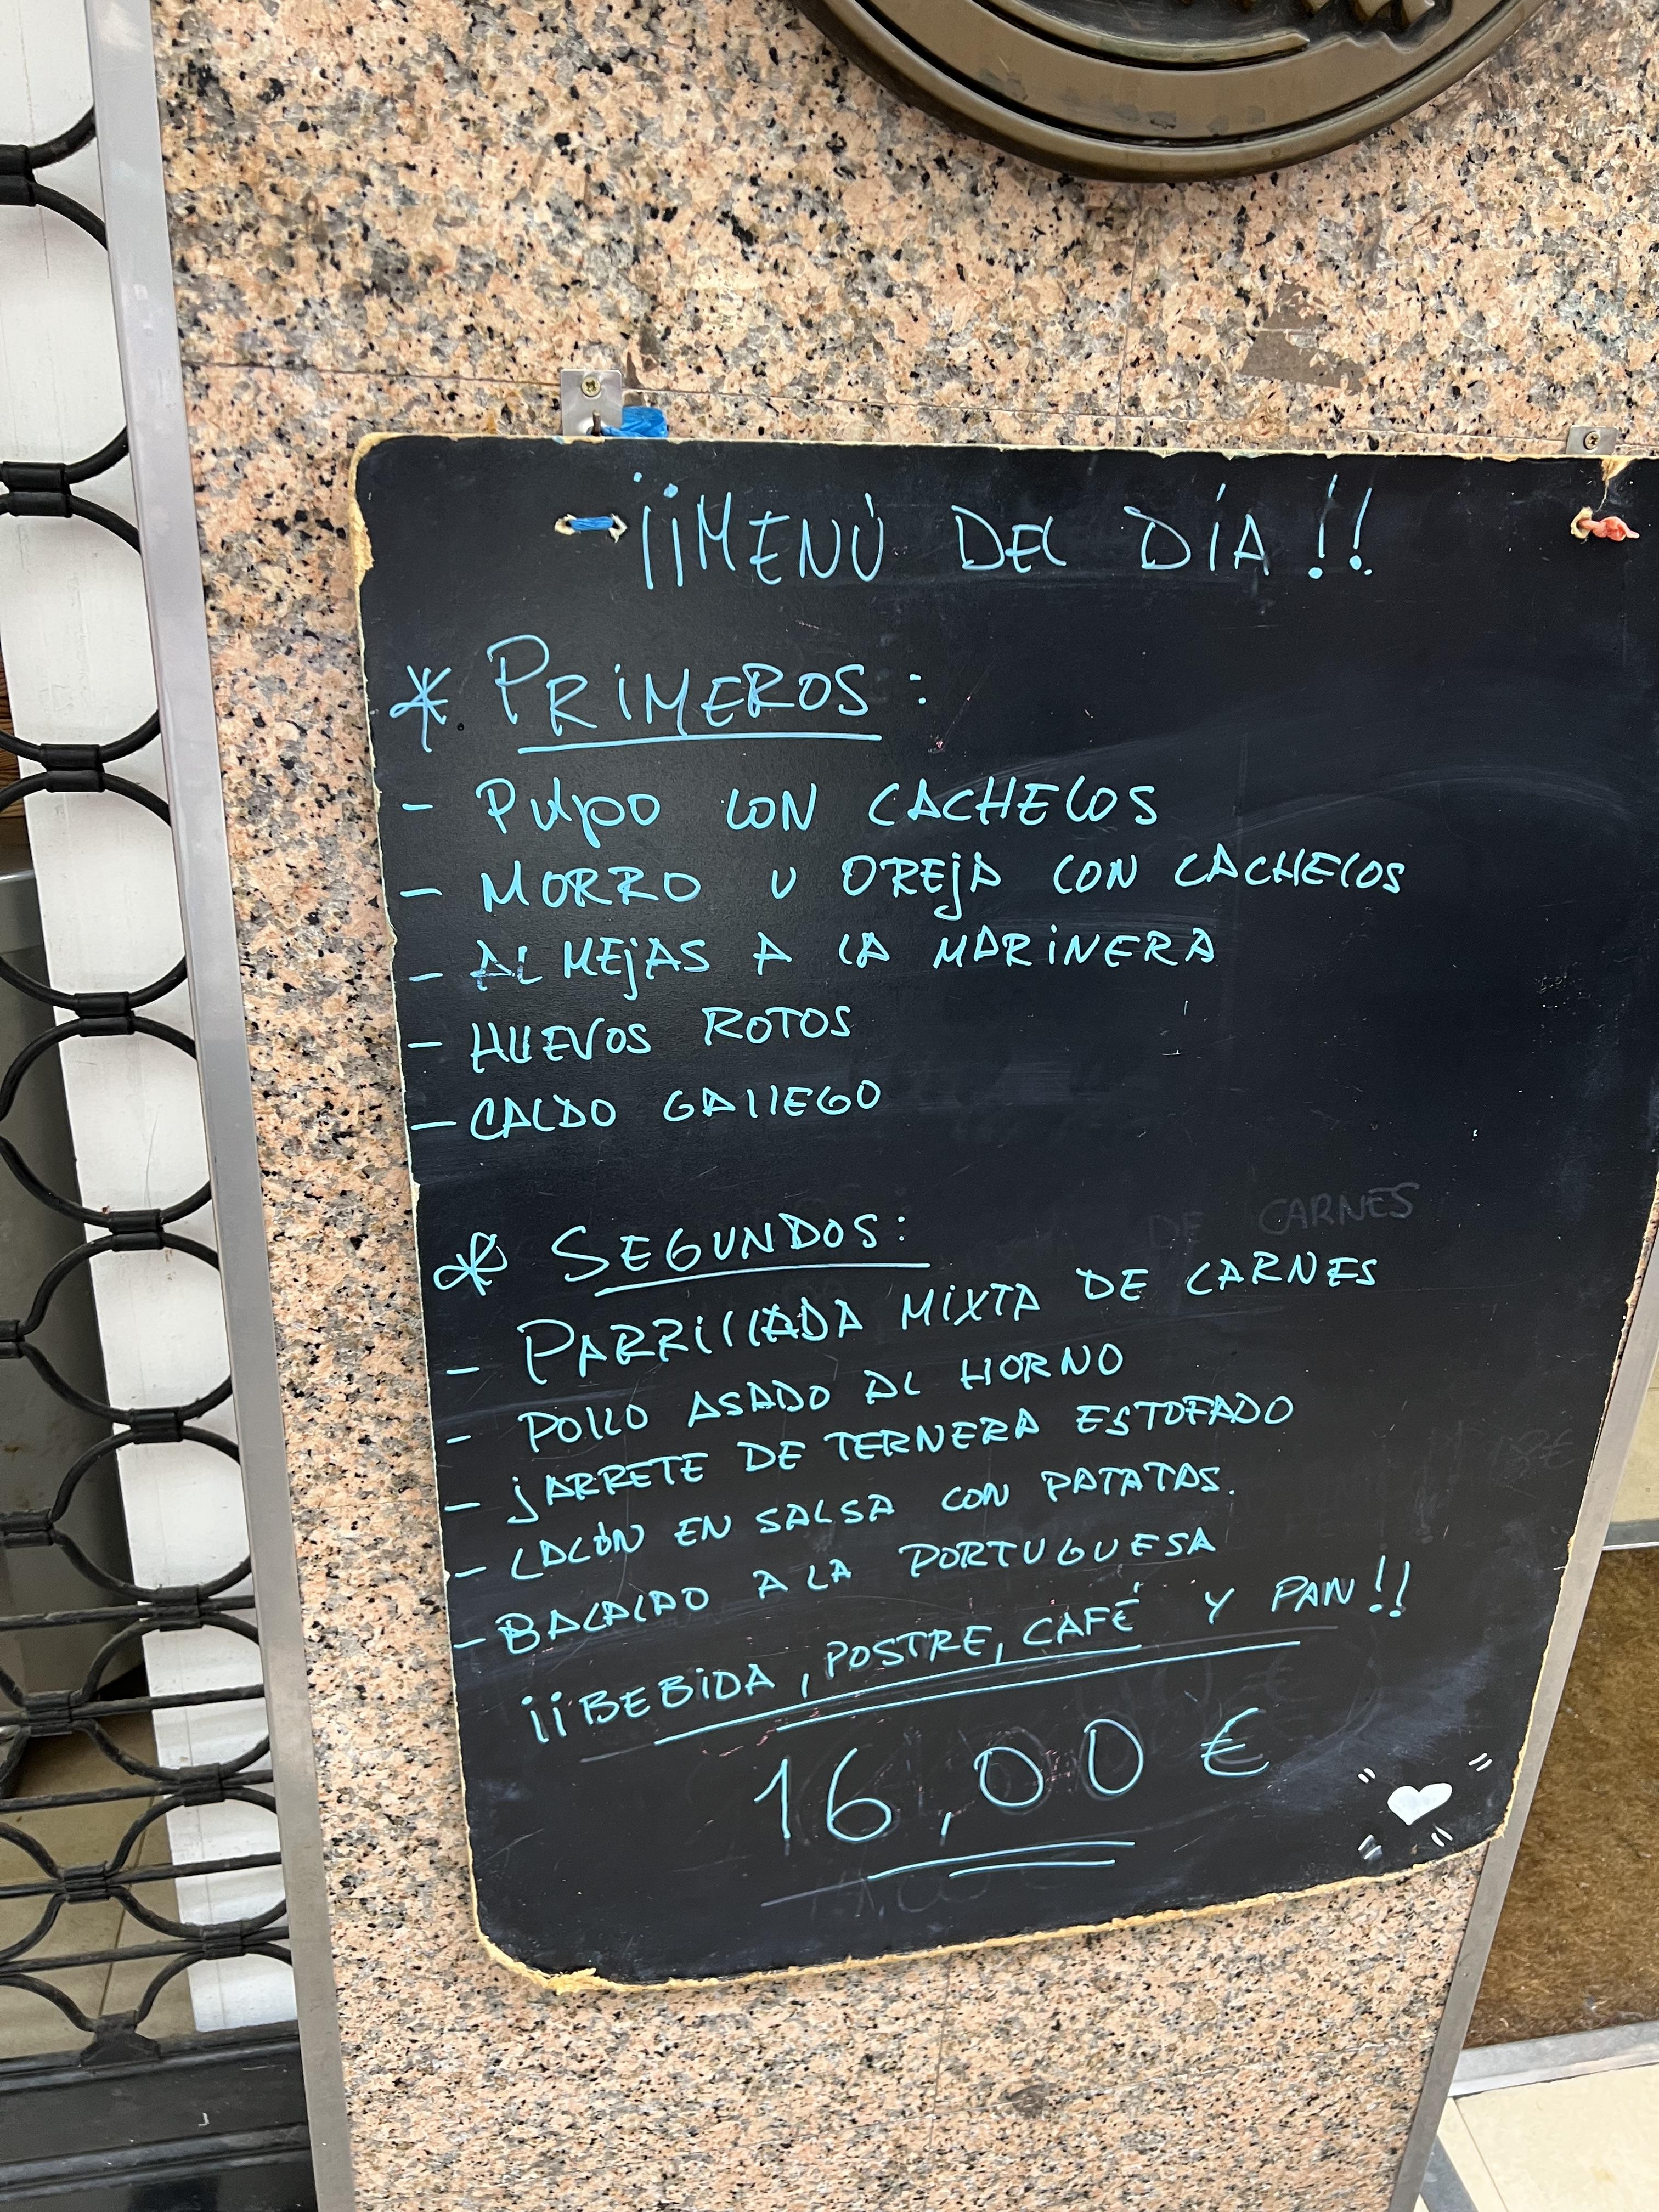 ¡¡MENÚ DEL DÍA!!
* PRIMEROS:
- PULPO CON CACHELOS
- MORRO U OREJA CON CACHELOS
- ALMEJAS A LA MARINERA
- HUEVOS ROTOS
- CALDO GALLEGO
DE CARNES
* SEGUNDOS:
- PARRILLADA MIXTA DE CARNES
- POLLO ASADO AL HORNO
- JARRETE DE TERNERA ESTOFADO
- LACÓN EN SALSA CON PATATAS.
- BACALAO A LA PORTUGUESA
¡¡BEBIDA, POSTRE, CAFÉ Y PAN!!
16,00 €